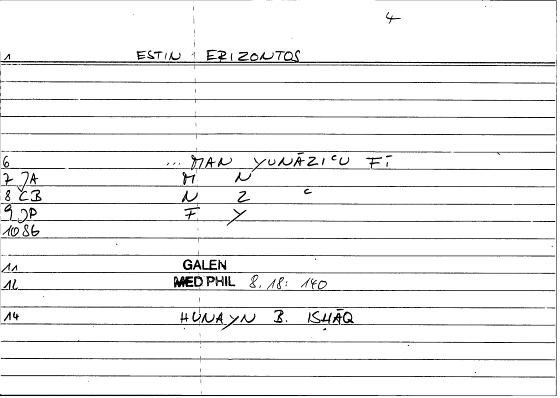 4
1 ESTIN ERIZONTOS
6 ... MAN YUNĀZIʿU FĪ
7 JA M N
8 CB N Z ʿ
9 JP F Y
1086
11 GALEN
12 MED PHIL 8.18: 140
14 HUNAYN B. ISHĀQ